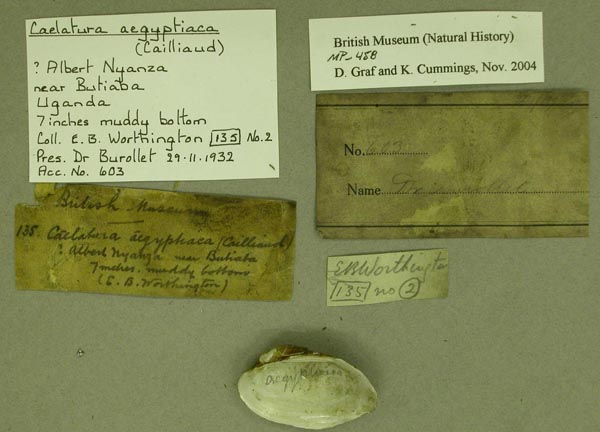 Caelatura aegyptiaca
(Cailliaud)
? Albert Nyanza
near Butiaba
Uganda
7inches muddy bottom
Coll. E. B. Worthington 135 No.2
Pres. Dr Burollet 29.11.1932
Acc. No. 603
British Museum (Natural History)
MP-458
D. Graf and K. Cummings, Nov. 2004
No. 603
Name
British Museum
135. Caelatura aegyptiaca (Cailliaud)
? Albert Nyanza near Butiaba
7metres. muddy bottoms
(E. B. Worthington)
EBWorthington
135 no 2